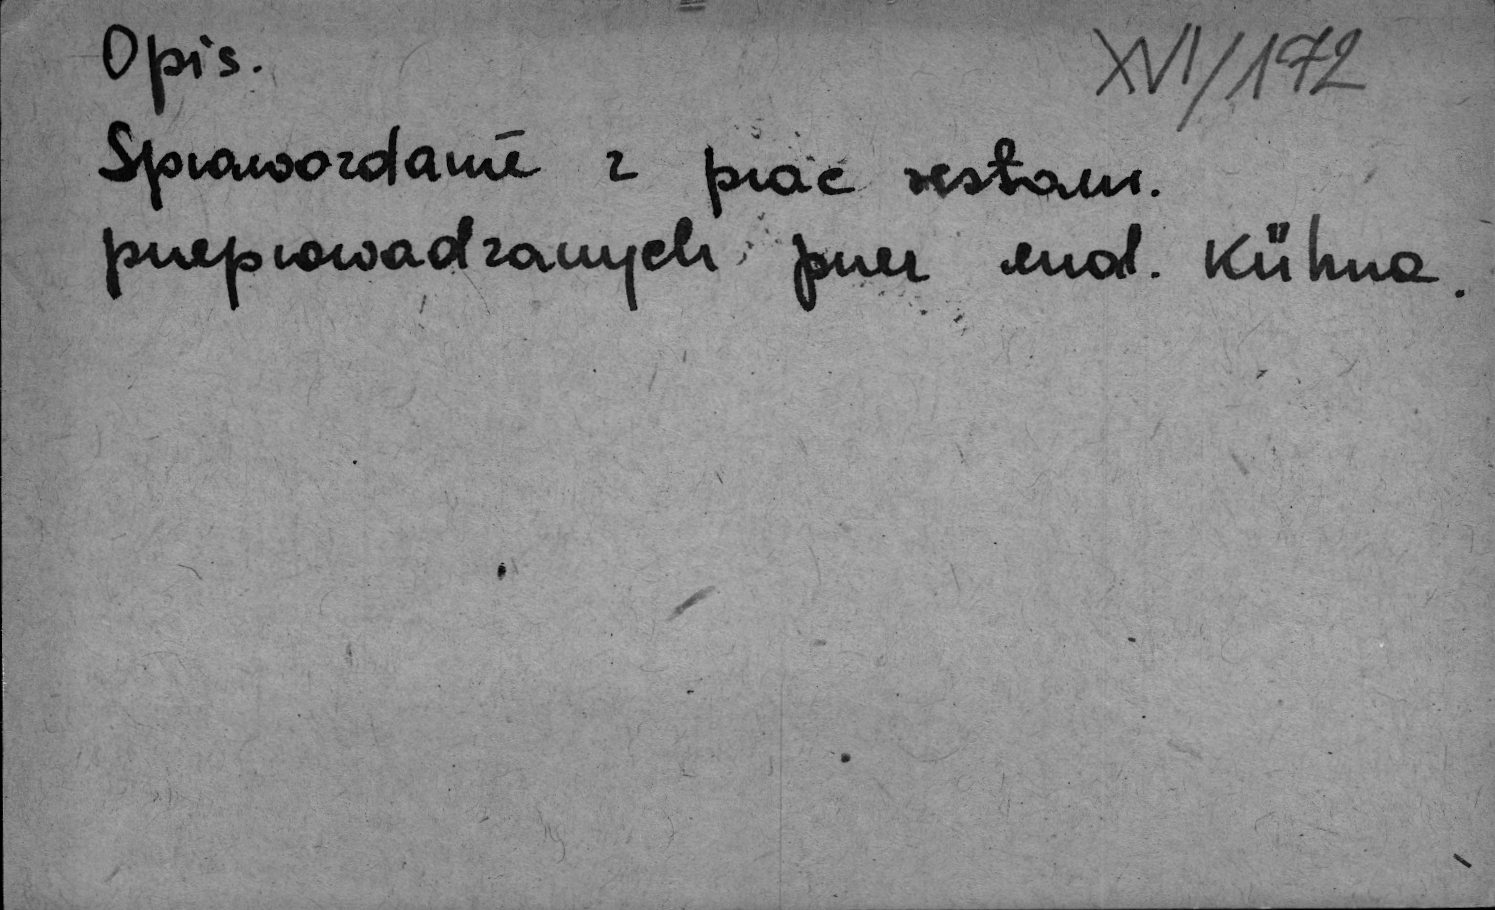 Opis. XVI/172
Sprawozdanie z prac restaur.
przeprowadzanych przez rad. Kühna.